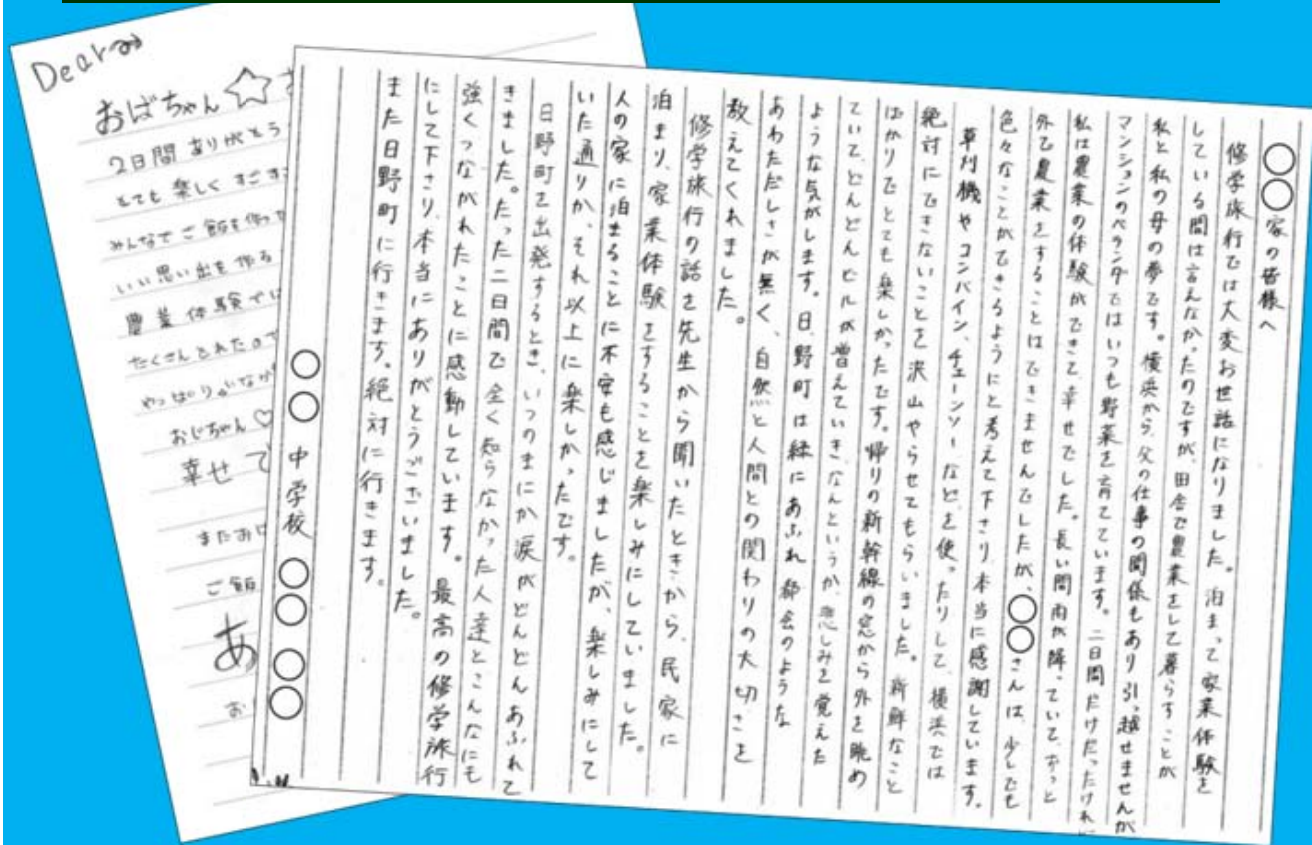 Dear
おばちゃん☆
2日間ありがとう
とても楽しくすごす
みんなでご飯を作っ
いい思い出を作る
農業体験では
たくさんとれたので
やっぱり
おじちゃん♡
幸せで
またお
ご飯
あ
お
○○家の皆様へ
修学旅行では大変お世話になりました。泊まって家業体験を
している間は言えなかったのですが、田舎で農業をして暮らすことが
私と私の母の夢です。横浜から、父の仕事の関係もあり引っ越せませんが
マンションのベランダではいつも野菜を育てています。二日間だけだったけれど
私は農業の体験ができて、幸せでした。長い間雨が降っていて、ずっと
外で農業をすることはできませんでしたが、○○さんは、少しでも
色々なことができるようにと考えて下さり本当に感謝しています。
草刈機やコンバイン、チェーンソーなどを使ったりして、横浜では
絶対にできないことを沢山やらせてもらいました。新鮮なこと
ばかりでとても楽しかったです。帰りの新幹線の窓から外を眺め
ていて、どんどんビルが増えていき、なんというか、悲しみを覚えた
ような気がします。日野町は緑にあふれ都会のような
あわただしさが無く、自然と人間との関わりの大切さを
教えてくれました。
修学旅行の話を先生から聞いたときから、民家に
泊まり、家業体験をすることを楽しみにしていました。
人の家に泊まることに不安も感じましたが、楽しみにして
いた通りか、それ以上に楽しかったです。
日野町を出発するとき、いつのまにか涙がどんどんあふれて
きました。たった二日間で全く知らなかった人達とこんなにも
強くつながれたことに感動しています。最高の修学旅行
にして下さり、本当にありがとうございました。
また日野町に行きます。絶対に行きます。
○○中学校 ○○ ○○